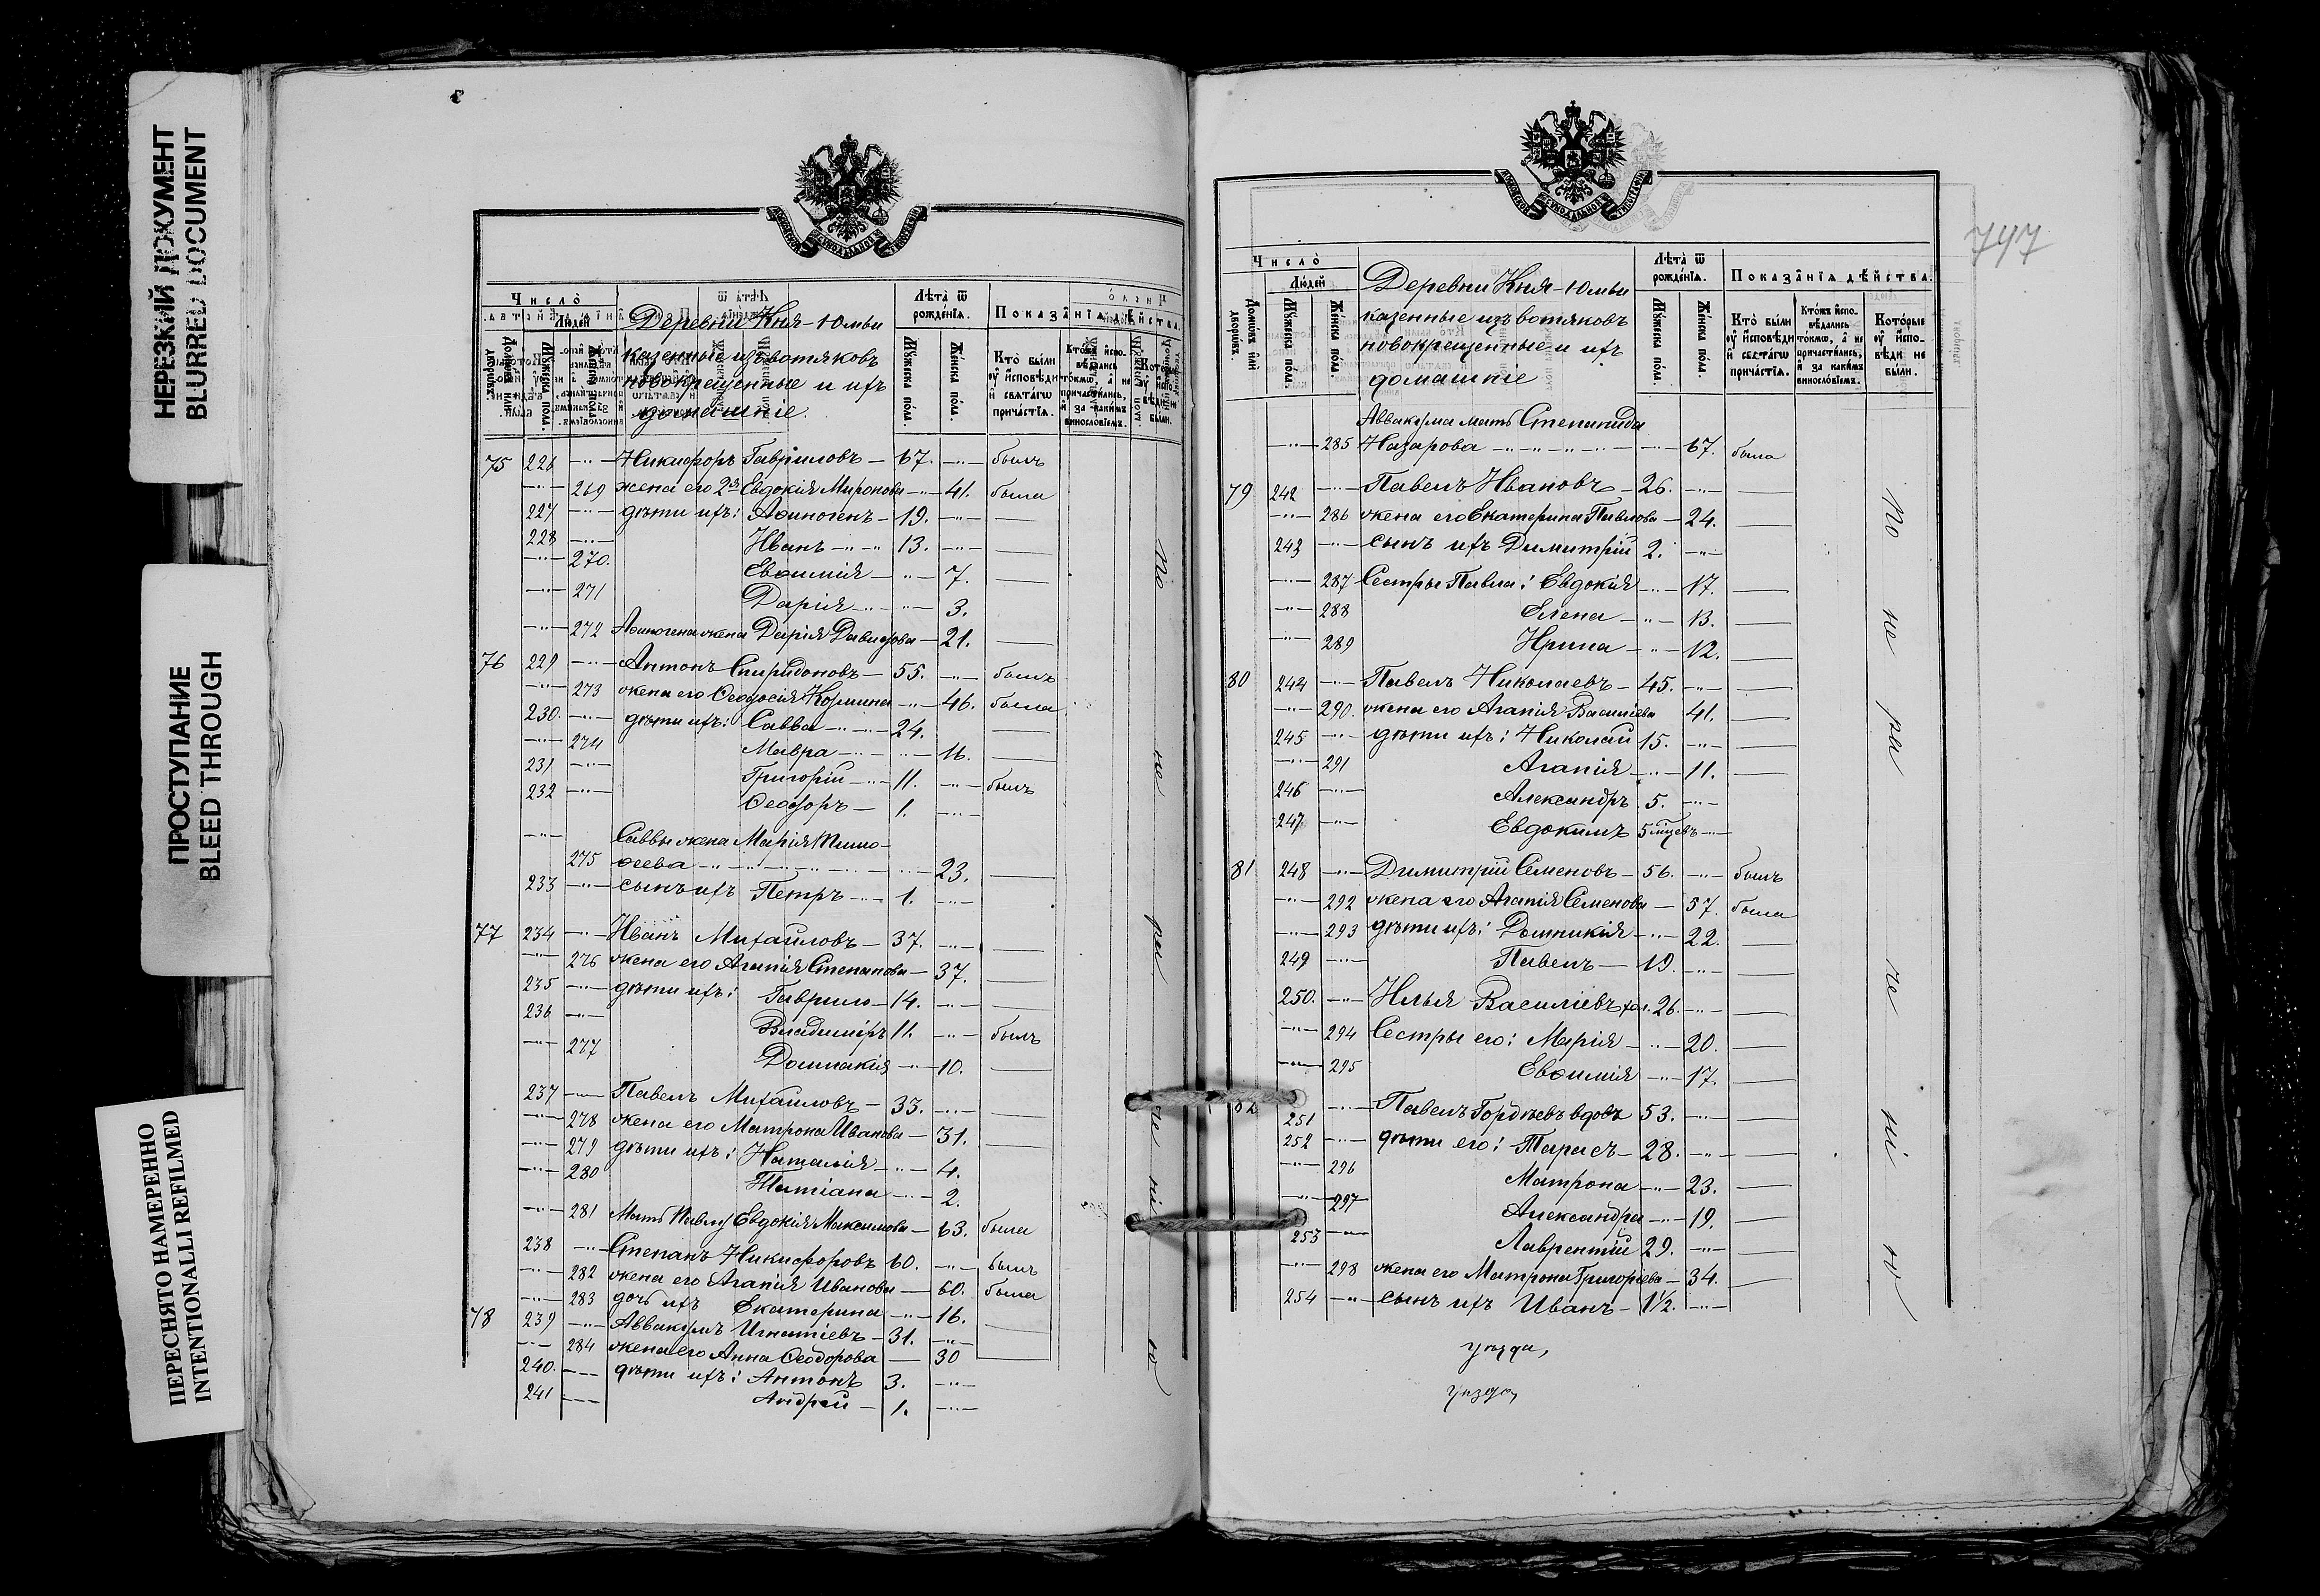 НЕРЕЗКИЙ ДОКУМЕНТ
BLURRED DOCUMENT
ПРОСТУПАНИЕ
BLEED THROUGH
ПЕРЕСНЯТО НАМЕРЕННО
INTENTIONALLI REFILMED
Число̀
Людей
Домѡвъ или дворѡвъ.
Мꙋжеска пола.
Женска пола.
Деревни Кня-Юмьи
казенные изъ вотяковъ
новокрещенные и ихъ
домашніе.
Лѣта ѿ рожденїѧ.
Мꙋжеска пола.
Женска пола.
Показанїѧ дѣйства.
Кто были оу исповѣди и свѧтагѡ причастїѧ.
75 226 —"— Никифоръ Гавриловъ — 67. —"— былъ
—"— 269 жена его 2я Евдокія Миронова —"— 41. была
227 —"— дѣти ихъ: Аѳиногенъ — 19. —"— —
228 —"— Иванъ —"— 13. —"— —
—"— 270. Евѳимія —"— 7. —
—"— 271 Дарія —"— 3.
—"— 272 Аѳиногена жена Дарія Давидова — 21. —
76 229 —"— Антонъ Спиридоновъ — 55. —"— былъ
—"— 273 жена его Ѳеодосія Козмина —"— 46. была
230. —"— дѣти ихъ: Савва —"— 24. —
—"— 274 Мавра —"— 16. —
231 —"— Григорій —"— 11. —"— былъ
232 —"— Ѳеодоръ — 1. —"—
—"— Саввы жена Марія Тимо-
275 ѳеева —"— 23. —
233 —"— сынъ ихъ Петръ —"— 1. —"—
77 234 —"— Иванъ Михайловъ — 37. —"— —
—"— 276 жена его Агапія Степанова — 37. —
235 —"— дѣти ихъ: Гаврило — 14. —"— —
236 —"— Владиміръ 11. —"— былъ
—"— 277 Домникія —"— 10. —
237 —"— Павелъ Михайловъ — 33. —"— —
—"— 278 жена его Матрона Иванова — 31. —
—"— 279 дѣти ихъ: Наталія —"— 4.
—"— 280 Татіана —"— 2.
—"— 281 Мать Евдокія Максимова — 63. была
238 —"— Степанъ Никифоровъ 60. —"— былъ
—"— 282 жена его Агапія Иванова — 60. была
—"— 283 дочь ихъ Екатерина —"— 16. —
78 239 —"— Аввакумъ Игнатіевъ — 31. —"— —
—"— 284 жена его Анна Ѳеодорова — 30 —
240. —"— дѣти ихъ: Антонъ 3. —"—
241 —"— Андрей — 1. —"—
По
не
ра
не
ні
ю
747
Число̀
Людей
Домѡвъ или дворѡвъ.
Мꙋжеска пола.
Женска пола.
Деревни Кня-Юмьи
казенные изъ вотяковъ
новокрещенные и ихъ
домашніе
Лѣта ѿ рожденїѧ.
Мꙋжеска пола.
Женска пола.
Показанїѧ дѣйства.
Кто были оу исповѣди и свѧтагѡ причастїѧ.
Которые оу исповѣди не были.
Аввакума мать Степанида
—"— 285 Назарова —"— 67. была
79 242 —"— Павелъ Ивановъ — 26. —"— —
—"— 286 жена его Екатерина Павлова — 24. —
243 —"— сынъ ихъ Димитрій 2. —"—
—"— 287 Сестры Павла: Евдокія —"— 17. —
—"— 288 Елена —"— 13. —
—"— 289 Ирина —"— 12. —
80 244 —"— Павелъ Николаевъ — 45. —"— —
—"— 290. жена его Агапія Василіева 41. —
245 —"— дѣти ихъ: Николай 15. —"— —
—"— 291 Агапія —"— 11. —
246 —"— Александръ 5. —"—
247 —"— Евдокимъ 5 мцевъ —"—
81 248 —"— Димитрій Семеновъ — 56. —"— былъ
—"— 292 жена его Агапія Семенова — 57. была
—"— 293 дѣти ихъ: Домникія —"— 22. —
249 —"— Павелъ — 19. —"— —
250. —"— Илья Василіевъ хол. 26. —"— —
—"— 294 Сестры его: Марія —"— 20. —
—"— 295 Евѳимія —"— 17. —
82 251 —"— Павелъ Гордѣевъ вдовъ 53. —"— —
252 —"— дѣти его: Тарасъ — 28. —"— —
—"— 296 Матрона —"— 23. —
—"— 297 Александра —"— 19. —
253 —"— Лаврентій 29. —"— —
—"— 298 жена его Матрона Григоріева — 34. —
254 —"— сынъ ихъ Иванъ — 1½. —"—
По
не
ра
не
ні
ю
уѣзда,